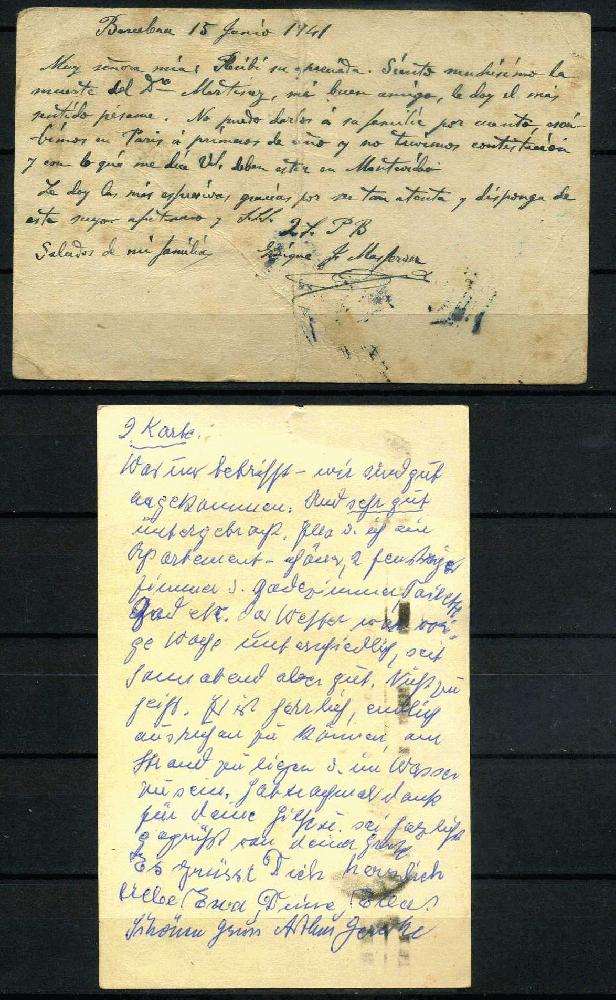 Barcelona 15 Junio 1941
Muy señora mia: Recibí su apenada. Siento muchísimo la
muerte del Dr Martinez, mi buen amigo, le doy el más
sentido pésame. No puedo darlos á su familia por cuanto, escri-
bimos en Paris á primeros de año y no tuvimos contestación
y con lo que me dice Vd. deben estar en Montevideo
Le doy las más expresivas gracias por ser tan atenta y disponga de
este suyo afmo y S.S.
Saludos de mi familia Enrique J. Masferrer
2 Karte.
Was uns betrifft - wir sind gut
angekommen. Und sehr gut
untergebracht. Ella u. ich ein
Apartement - schönes, 2 fenstriges
Zimmer u. Badezimmer Toilette
Bad etc. Das Wetter war vori-
ge Woche unterschiedlich, seit
Sonnabend aber gut. Nicht zu
heiß. Es ist herrlich, endlich
ausruhen zu können, am
Strand zu liegen u. im Wasser
zu sein. Hab nochmal Dank
für Deine Hilfe u. sei herzlichst
gegrüßt von Deiner
Es grüsst Dich herzlich
liebe Deine Ella.
Schönen Gruss Arthur